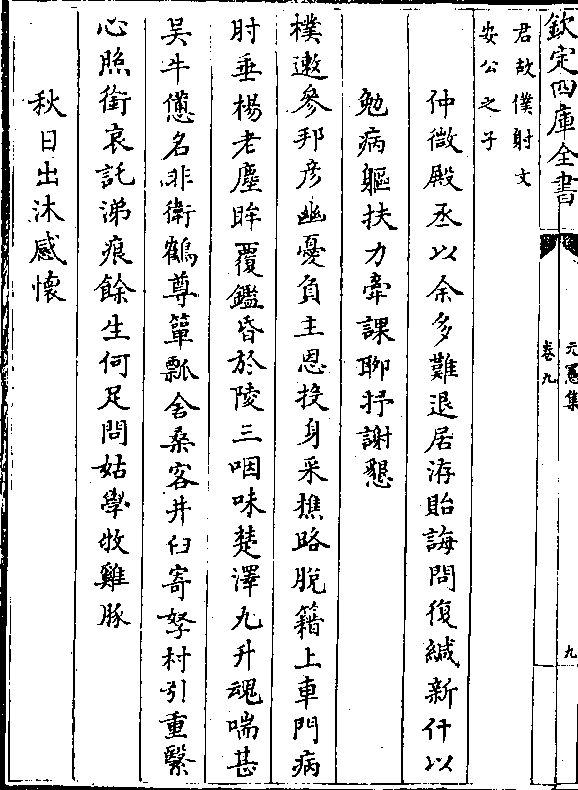 欽定四庫全書
元憲集
卷九
九
君故僕射文
安公之子
仲微殿丞以余多難退居洊貽誨問復緘新什以
勉病軀扶力牽課聊抒謝懇
樸遫參邦彥幽憂負主恩投身采樵路脫籍上車門病
肘垂楊老塵眸覆鑑昏於陵三咽味楚澤九升魂喘甚
吴牛憊名非衛鶴尊簞瓢舍桑客井臼寄孥村引重繄
心照銜哀託涕痕餘生何足問姑學牧雞豚
秋日出沐感懷